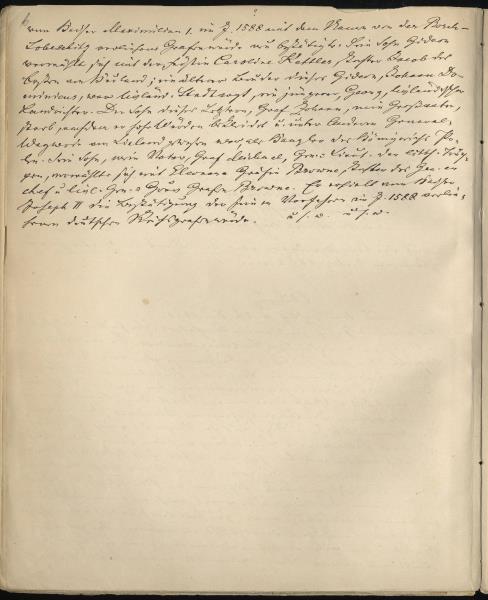 vom Kaiser Maximilian I. im J. 1588 mit dem Namen von der Borch-
Lobeskitz verliehene Grafenwürde u. bestätigt. Sein Sohn Gideon
vermählte sich mit der Fürstin Caroline Kettler, Tochter Jacob des
in Kurland, sein älterer Bruder dieser Gideon, Johann Do-
minicus, war livländ. Stadtvogt, ein jüngerer, Georg, livländischer
Landrichter. Der Sohn dieses Letztern, Graf Johann, mein Großvater,
starb, nachdem er hohe Würden bekleidet u. unter Anderm General-
von Livland gewesen war, als Kanzler des Königreichs Po-
len. Sein Sohn, mein Vater, Graf Michael, Gen: Lieut. der litth. Trup-
pen, vermählte sich mit Eleonora Gräfin Browne, Tochter des Gen: en
chef u. livl. Gen: Gouv. Grafen Browne. Er erhielt vom Kaiser
Joseph II die Bestätigung der seinen Vorfahren im J. 1588 verlie-
henen deutschen Reichsgrafenwürde. u. s. w. u. s. w.